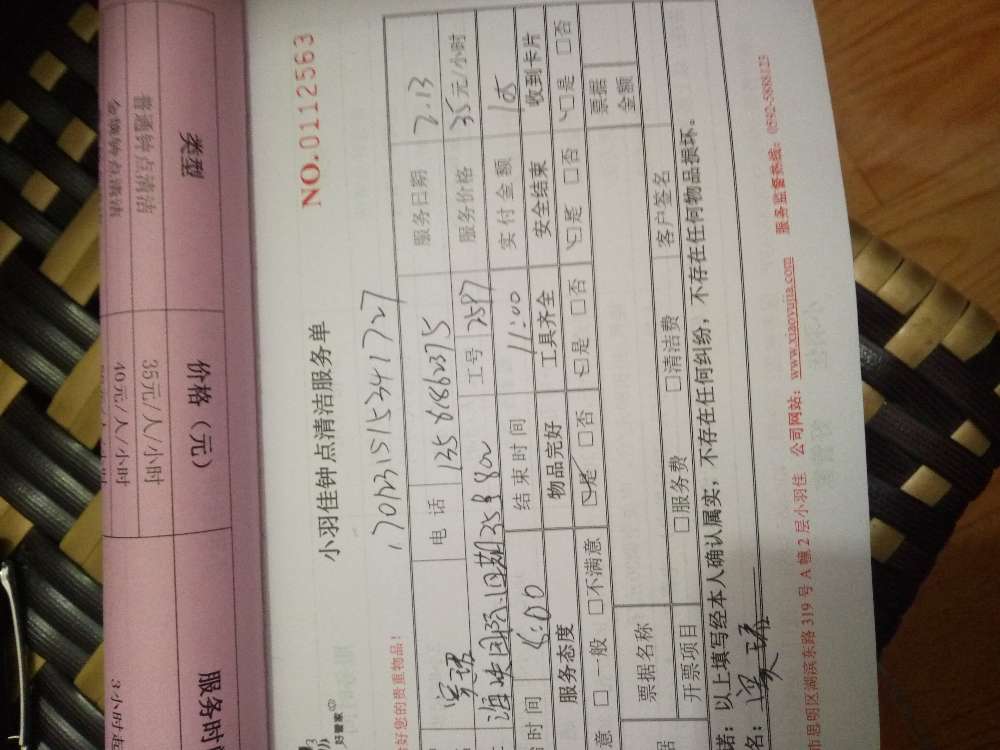 类型
价格（元）
服务时
普通钟点清洁
35元/人/小时
3小时起
40元/人/小时
NO.0112563
小羽佳钟点清洁服务单
好管家
好您的贵重物品！
电话
服务日期
2.13
工号
2587
服务价格
35元/小时
时间
8:00
结束时间
11:00
实付金额
105
服务态度
物品完好
工具齐全
安全结束
收到卡片
意 □一般 □不满意
☑是 □否
☑是 □否
☑是 □否
☑是 □否
票据名称
票据金额
开票项目
□服务费 □清洁费
客户签名
诺：以上填写经本人确认属实，不存在任何纠纷，不存在任何物品损坏。
名：
市思明区湖滨东路319号A幢2层小羽佳 公司网站：www.xiaoyujia.com 服务监督热线：0592-5888123